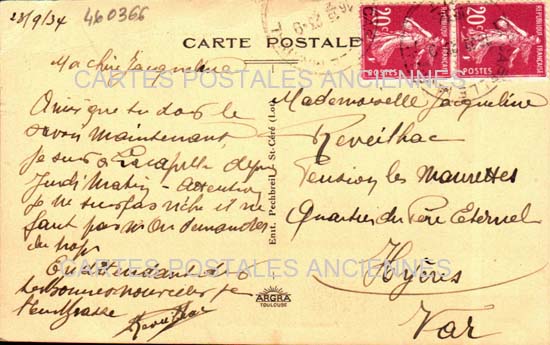 23/9/34
460366
CARTE POSTALE
20c
POSTES
RÉPUBLIQUE FRANÇAISE
20c
POSTES
RÉPUBLIQUE FRANÇAISE
CARTES POSTALES ANCIENNES
Ma Chère Jacqueline
Ainsi que tu dois le
savoir maintenant,
je suis à Lacapelle depuis
Jeudi Matin - attention
je ne suis pas riche et ne
faut pas m'en demander
de trop
En attendant de
tes bonnes nouvelles je
t'embrasse
Reveilhac
Ent. Pechbreil - St-Céré (Lot)
Mademoiselle Jacqueline
Reveilhac
Pension les Maurettes
Quartier du Père Eternel
Hyères
Var
CARTES POSTALES ANCIENNES
ARGRA
TOULOUSE